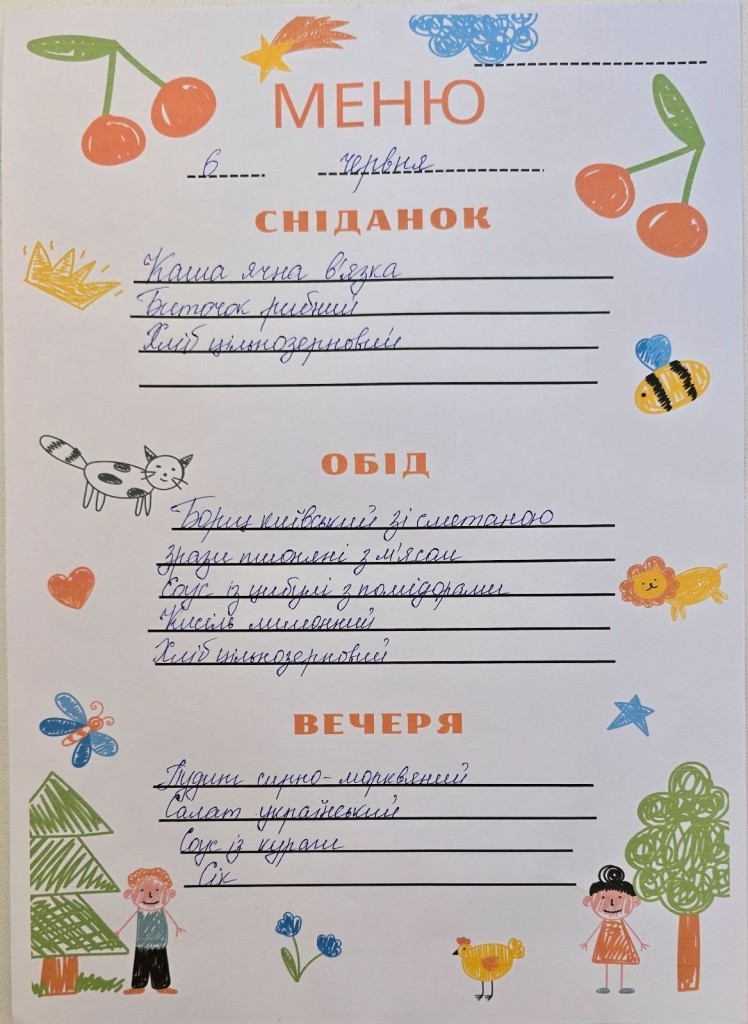 МЕНЮ
6 червня
СНІДАНОК
Каша ячна в'язка
Биточок рибний
Хліб цільнозерновий
ОБІД
Борщ київський зі сметаною
Зрази пшоняні з м'ясом
Соус із цибулі з помідорами
Кисіль лимонний
Хліб цільнозерновий
ВЕЧЕРЯ
Пудинг сирно-морквяний
Салат український
Соус із кураги
Сік